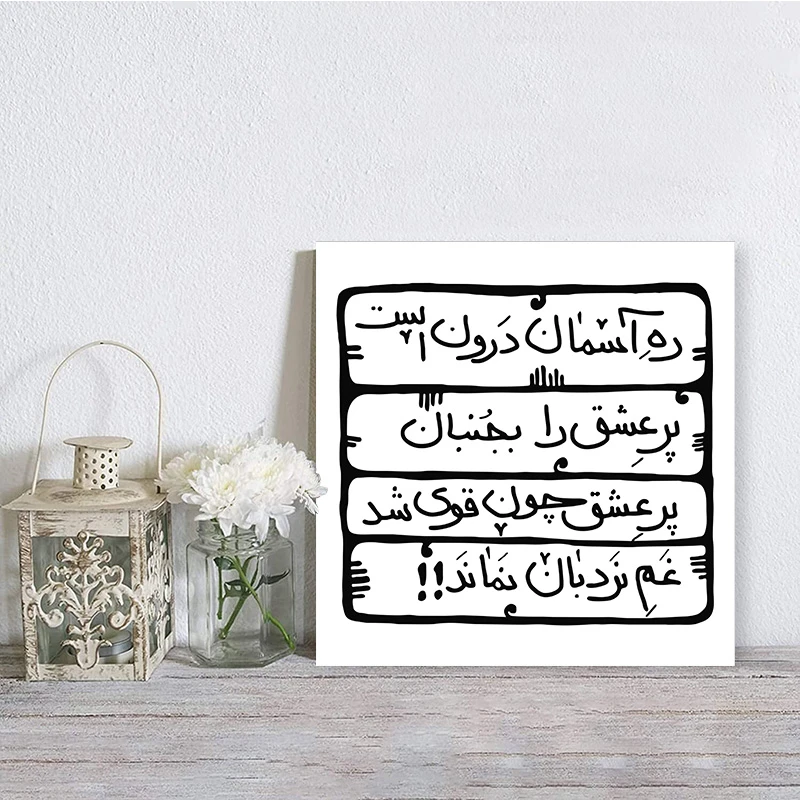 رهِ آسمان دَرون است
پر عِشق را بجُنبان
پر عِشق چون قوی شد
غَمِ نردبان نمانَد!!